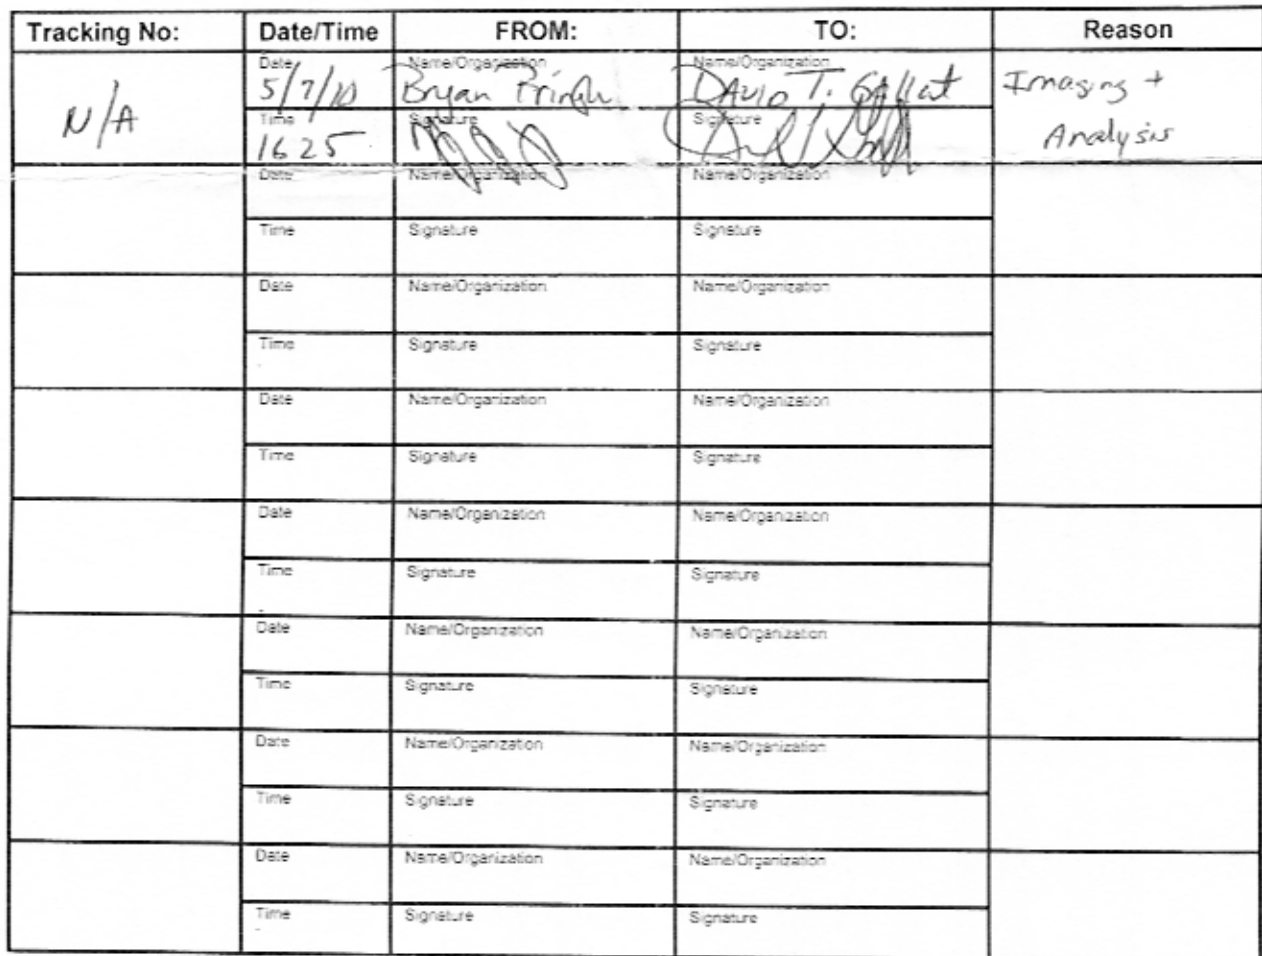 Tracking No: Date/Time FROM: TO: Reason
Date Name/Organization Name/Organization
5/7/10 Bryan DAVID T. Imaging +
N/A Analysis
Time Signature Signature
1625
Date Name/Organization Name/Organization
Time Signature Signature
Date Name/Organization Name/Organization
Time Signature Signature
Date Name/Organization Name/Organization
Time Signature Signature
Date Name/Organization Name/Organization
Time Signature Signature
Date Name/Organization Name/Organization
Time Signature Signature
Date Name/Organization Name/Organization
Time Signature Signature
Date Name/Organization Name/Organization
Time Signature Signature